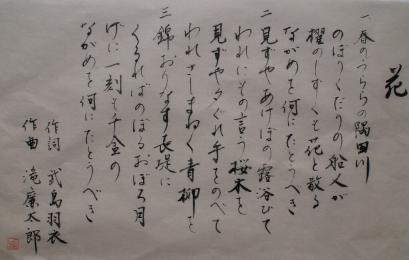 花
一 春のうららの隅田川
のぼりくだりの船人が
櫂のしずくも花と散る
ながめを何にたとうべき
二 見ずやあけぼの露浴びて
われにもの言う桜木を
見ずや夕ぐれ手をのべて
われさしまねく青柳を
三 錦おりなす長堤に
くるればのぼるおぼろ月
げに一刻も千金の
ながめを何にたとうべき
作詞 武島羽衣
作曲 滝廉太郎